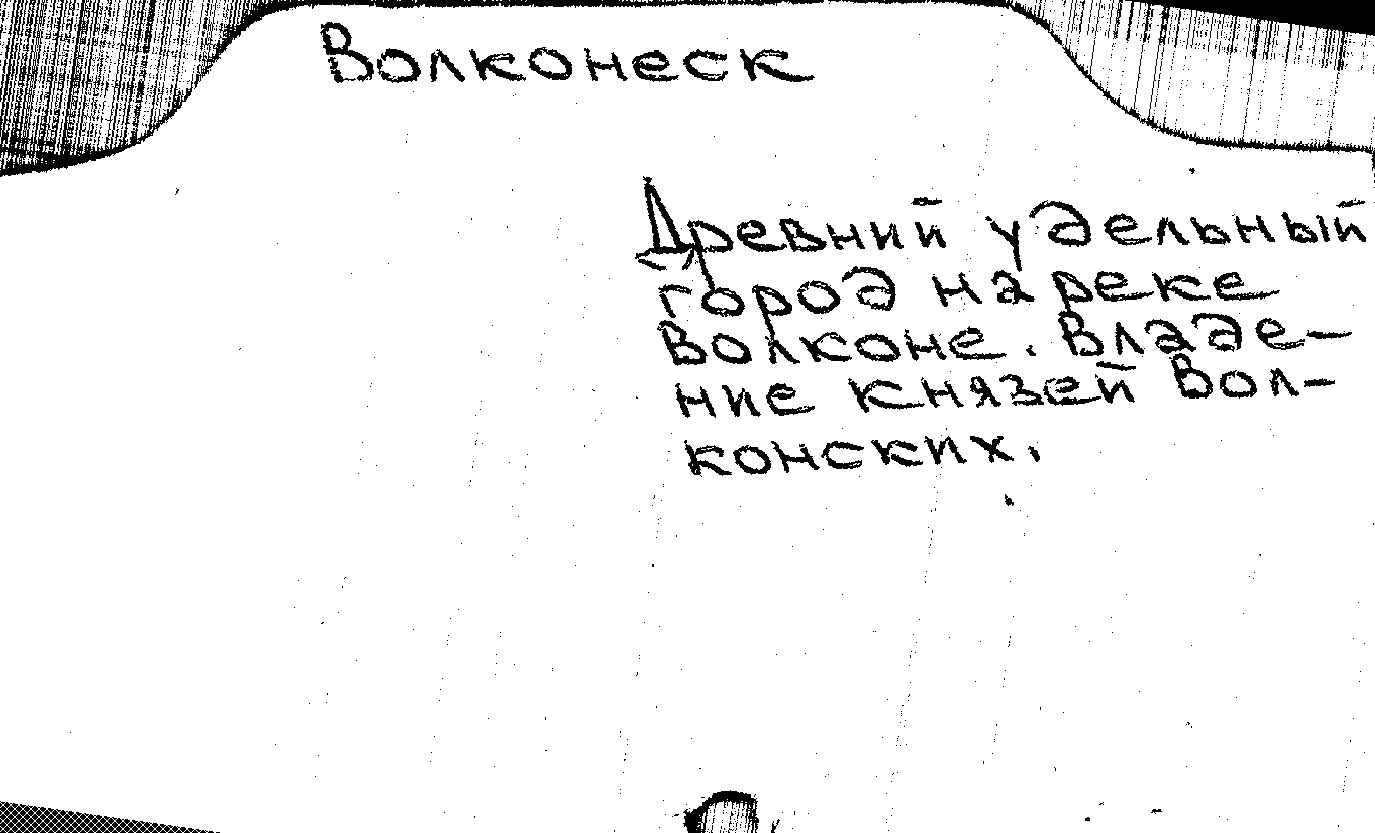 Волконеск
Древний удельный
город на реке
Волконе. Владе-
ние князей Вол-
конских.